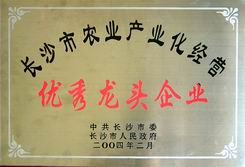 长沙市农业产业化经营
优秀龙头企业
中共长沙市委
长沙市人民政府
二〇〇四年二月